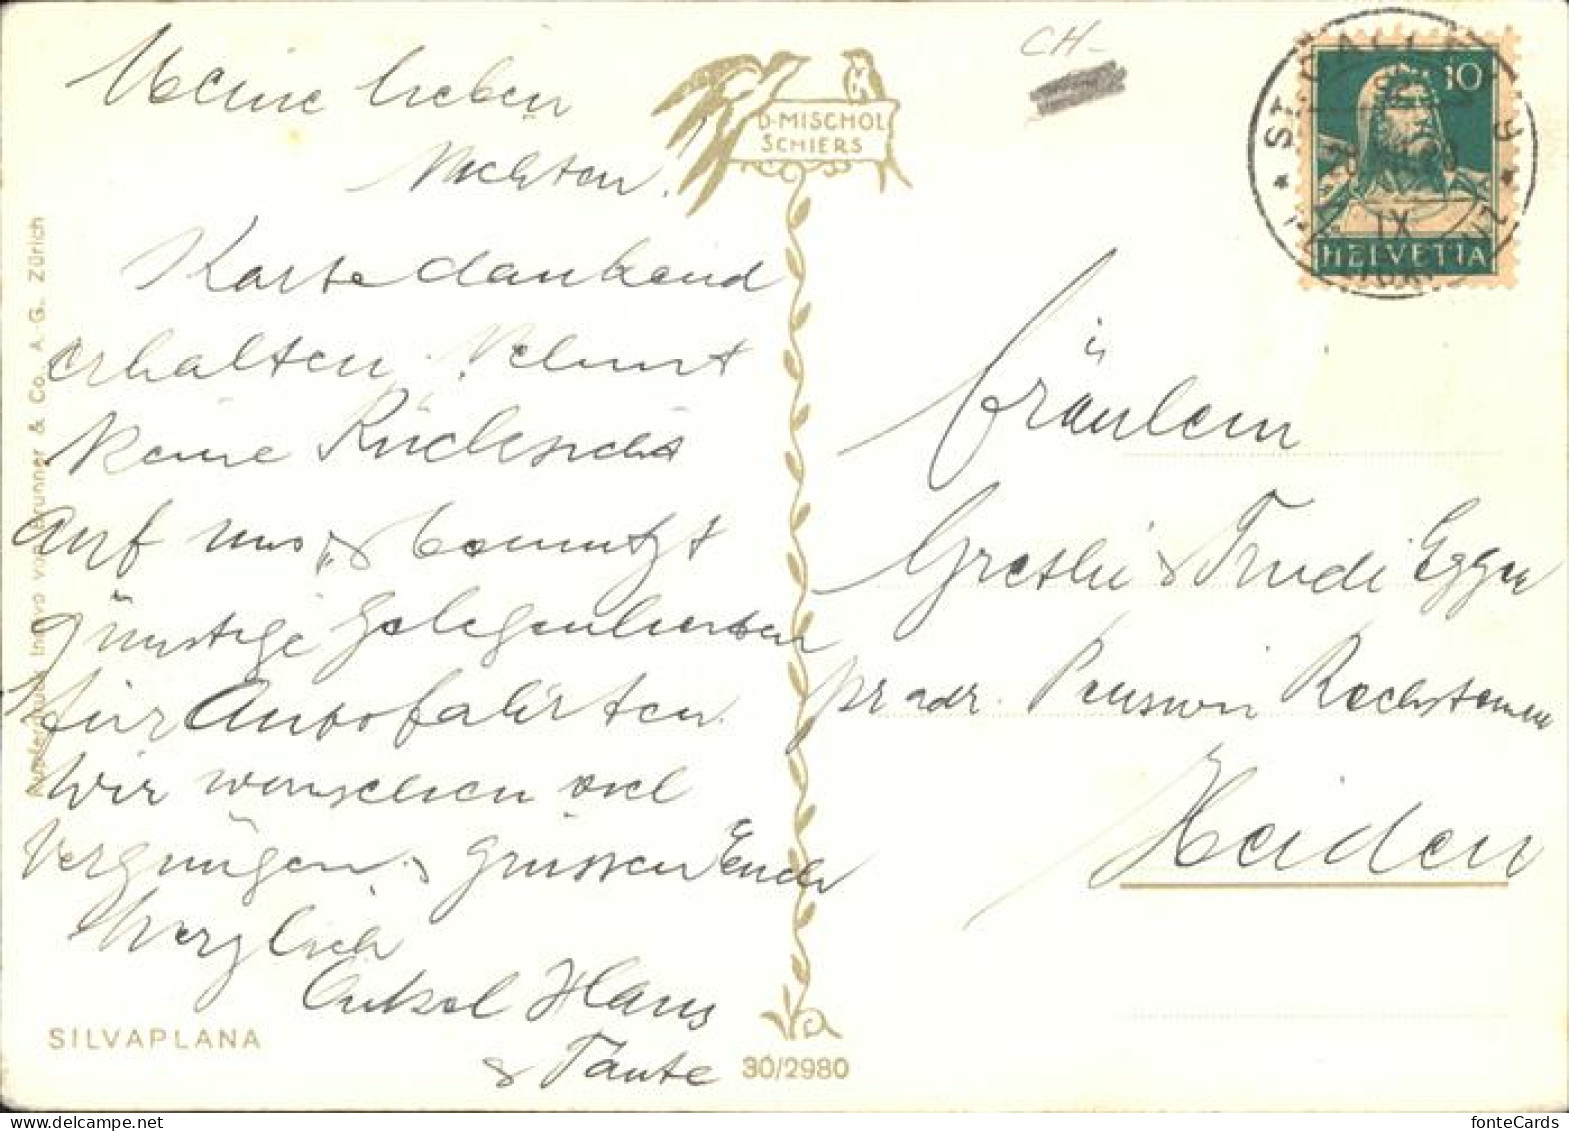 Meine lieben
Nichten.
Karte dankend
erhalten. Nehmt
keine Rücksicht
auf uns, & benutzt
günstige Gelegenheiten
für Autofahrten.
Wir wünschen viel
Vergnügen & grüssen Euch
herzlich
Onkel Hans
& Tante
SILVAPLANA
Kupferdruck Immo von Brunner & Co. A.-G. Zürich
D. MISCHOL
SCHIERS
30/2980
CH-
ST. GALLEN
10
IX
HELVETIA
Fräulein
Grethi & Trudi Egger
pr adr. Pension Rechsteiner
Heiden
fonteCards